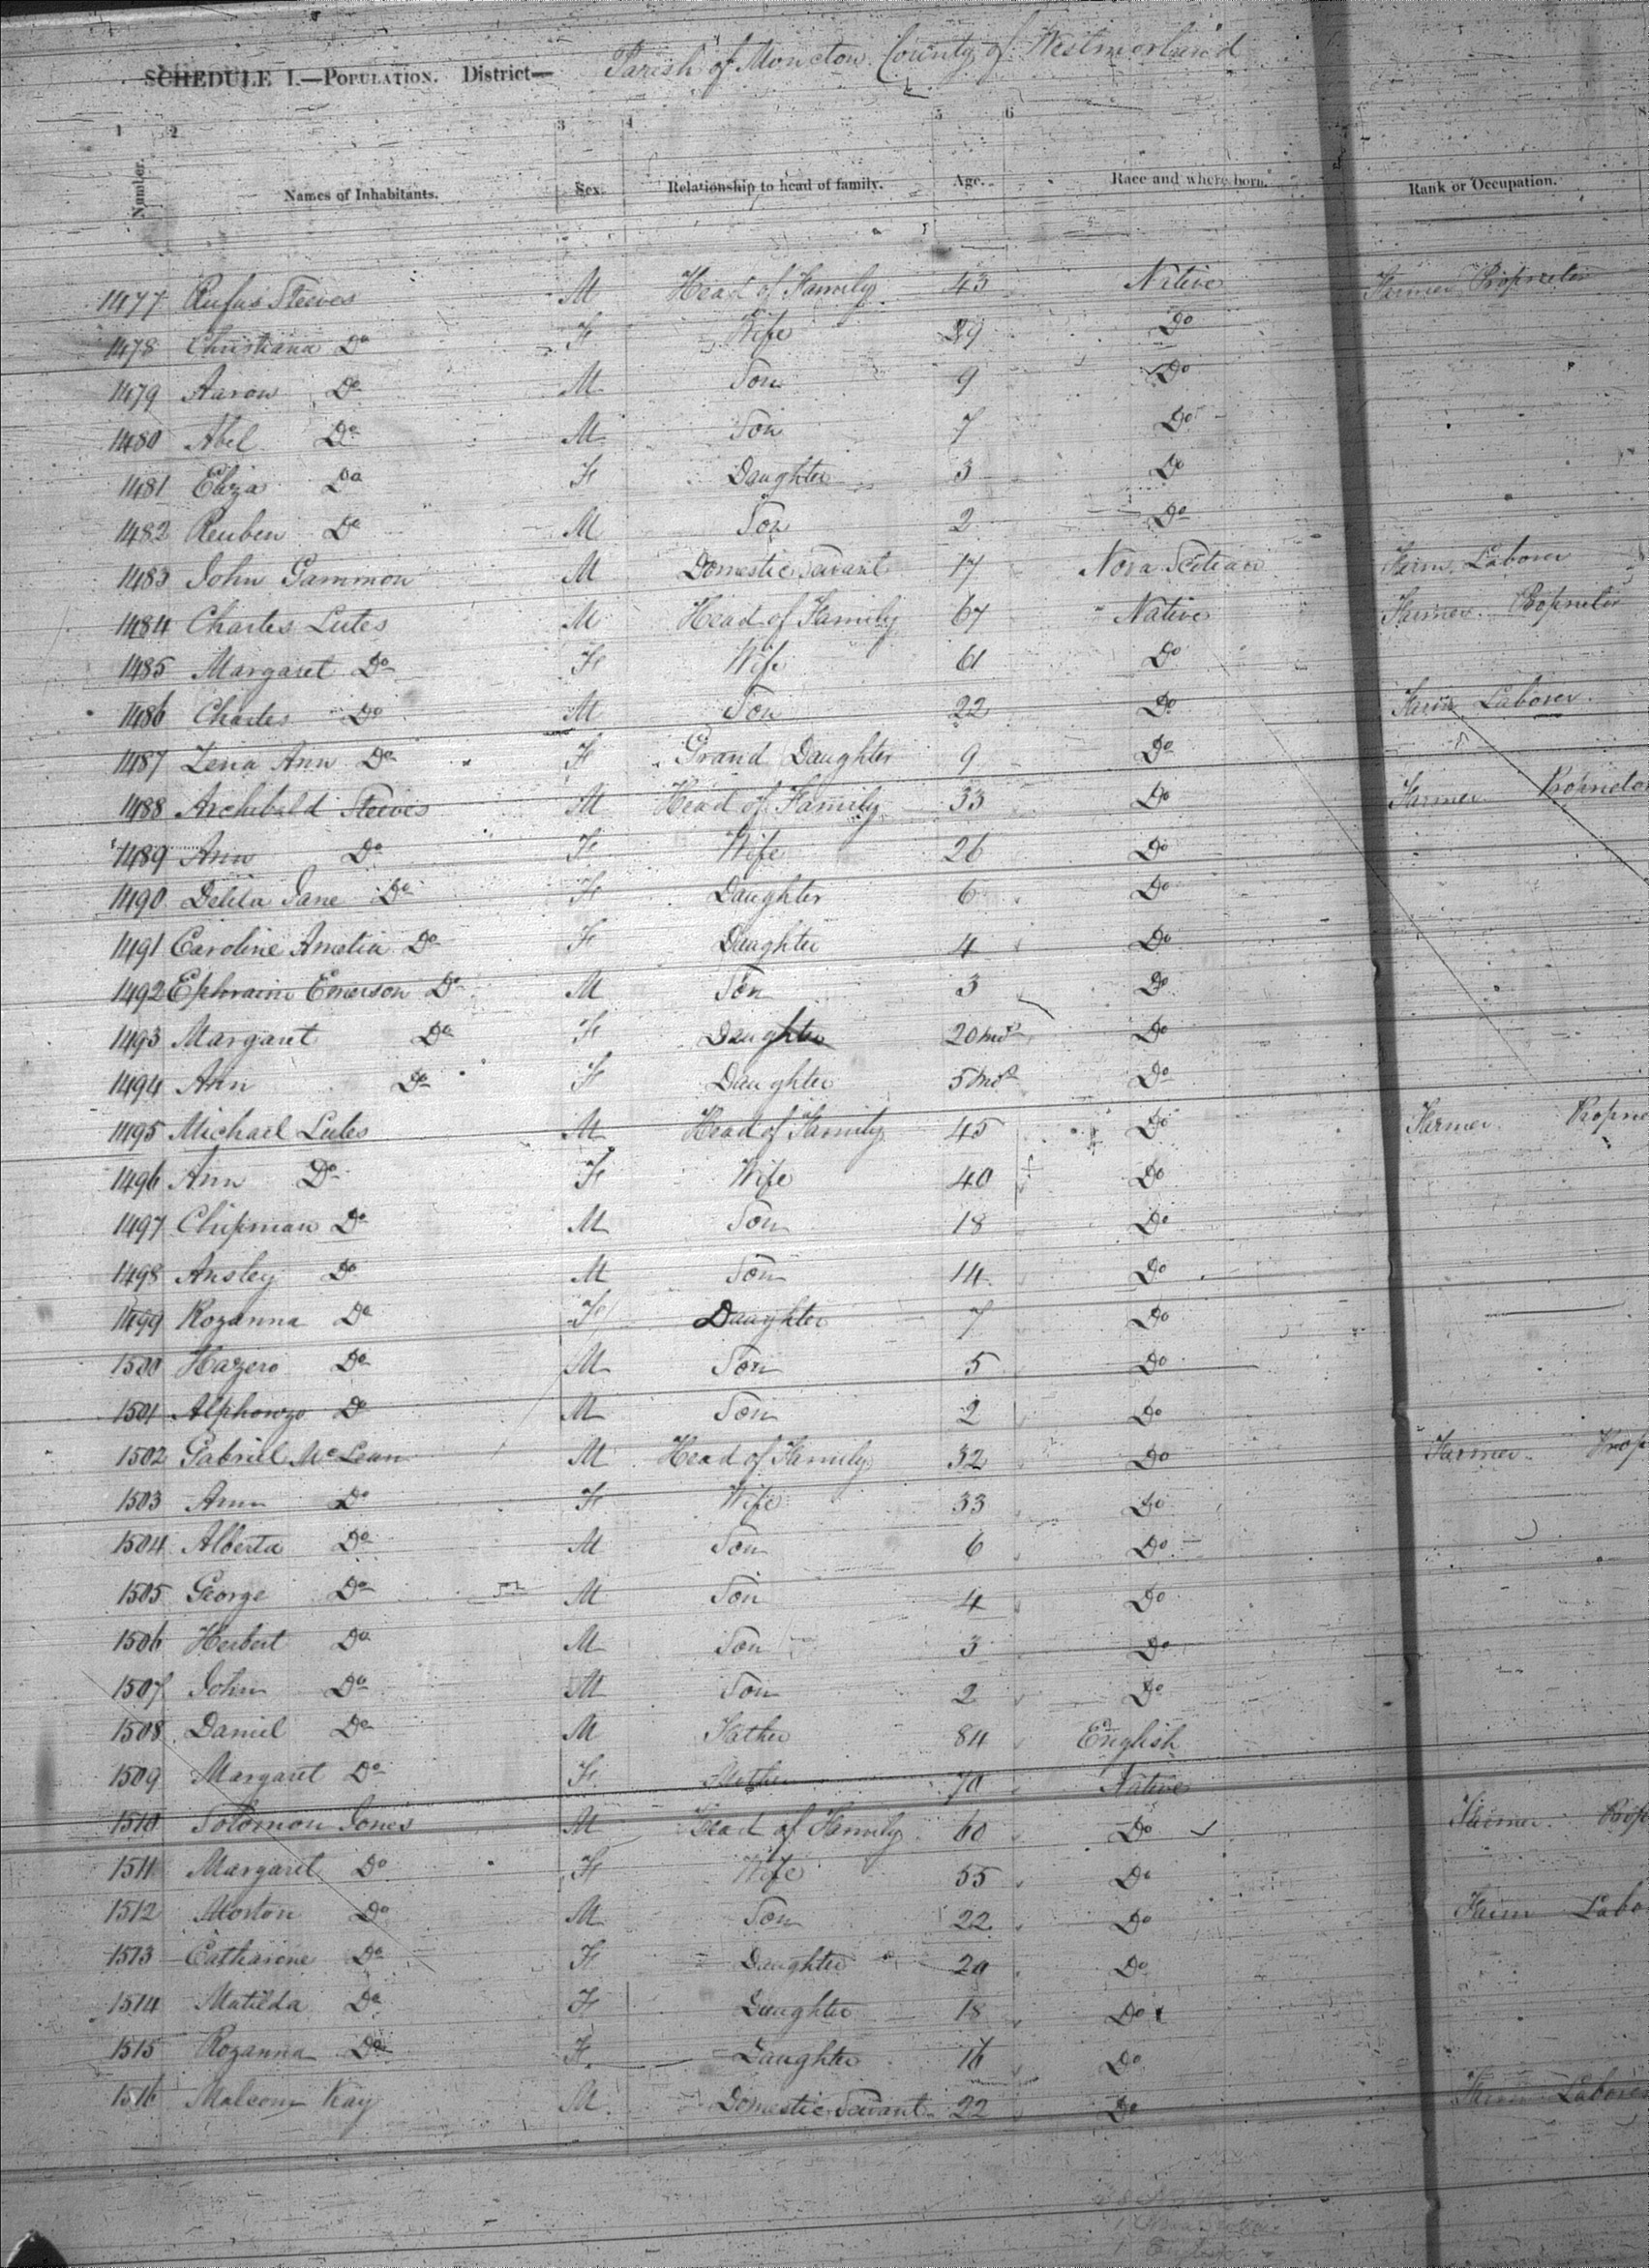 SCHEDULE I.—POPULATION. District— Parish of Moncton County of Westmorland
1 2 3 4 5 6 8
Number. Names of Inhabitants. Sex. Relationship to head of family. Age. Race and where born. Rank or Occupation.
1477 Rufus Steeves M Head of Family 43 Native Farmer Proprietor
1478 Christiana Do F Wife 29 Do
1479 Aaron Do M Son 9 Do
1480 Abel Do M Son 7 Do
1481 Eliza Do F Daughter 3 Do
1482 Reuben Do M Son 2 Do
1483 John Gammon M Domestic Servant 17 Nova Scotian Farm Laborer
1484 Charles Lutes M Head of Family 67 Native Farmer Proprietor
1485 Margaret Do F Wife 61 Do
1486 Charles Do M Son 22 Do Farm Laborer
1487 Zena Ann Do F Grand Daughter 9 Do
1488 Archibald Steeves M Head of Family 33 Do Farmer Proprietor
1489 Ann Do F Wife 26 Do
1490 Delila Jane Do F Daughter 6 Do
1491 Caroline Amelia Do F Daughter 4 Do
1492 Ephraim Emerson Do M Son 3 Do
1493 Margaret Do F Daughter 20 mos Do
1494 Ann Do F Daughter 5 mos Do
1495 Michael Lutes M Head of Family 45 Do Farmer Proprie
1496 Ann Do F Wife 40 Do
1497 Chipman Do M Son 18 Do
1498 Ansley Do M Son 14 Do
1499 Rozanna Do F Daughter 7 Do
1500 Hazero Do M Son 5 Do
1501 Alphonzo Do M Son 2 Do
1502 Gabriel McLean M Head of Family 32 Do Farmer Prop
1503 Ann Do F Wife 33 Do
1504 Alberta Do M Son 6 Do
1505 George Do M Son 4 Do
1506 Herbert Do M Son 3 Do
1507 John Do M Son 2 Do
1508 Daniel Do M Father 84 English
1509 Margaret Do F Mother 70 Native
1510 Solomon Jones M Head of Family 60 Do Farmer Prop
1511 Margaret Do F Wife 55 Do
1512 Morton Do M Son 22 Do Farm Labo
1513 Catharine Do F Daughter 20 Do
1514 Matilda Do F Daughter 18 Do
1515 Rozanna Do F Daughter 16 Do
1516 Malcom Kay M Domestic Servant 22 Do Farm Laborer